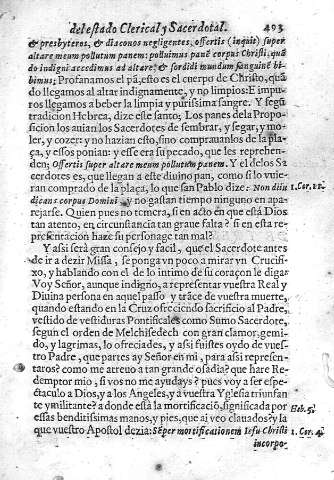 del estado Clerical, y Sacerdotal. 403
& presbyteros, & diaconos negligentes, offertis (inquit) super
altare meum pollutum panem: polluimus panē corpus Christi, quā
do indigni accedimus ad altare, & sordidi mundum sanguinē bi
bimus; Profanamos el pā, esto es el cuerpo de Christo, quā
do llegamos al altar indignamente, y no limpios: E impu
ros llegamos a beber la limpia y purissima sangre. Y segū
tradicion Hebrea, dize este santo; Los panes de la Propo
sicion los auian los Sacerdotes de sembrar, y segar, y mo-
ler, y cozer: y no hazian esto, sino comprauanlos de la pla
ça, y essos ponian: y esse era su pecado, que les reprehen-
den; Offertis super altare meum pollutum panem. Y el de los Sa
cerdotes es, que llegan a este diuino pan, como si lo vuie
ran comprado de la plaça, lo que san Pablo dize: Non diiu
dicans corpus Domini: y no gastan tiempo ninguno en apa-
rejarse. Quien pues no temera, si en acto en que està Dios
tan atento, en circunstancia tan graue falta? si en esta re-
presentacion haze su personage tan mal?
Y assi serà gran consejo y facil, que el Sacerdote antes
de ir a dezir Missa, se ponga vn poco a mirar vn Crucifi-
xo, y hablando con el de lo intimo de su coraçon le diga:
Voy Señor, aunque indigno, a representar vuestra Real y
Diuina persona en aquel passo y trāce de vuestra muerte,
quando estando en la Cruz ofrecistes sacrificio al Padre,
vestido de vestiduras Pontificales como Sumo Sacerdote,
segun el orden de Melchisedech con gran clamor, gemi-
do, y lagrimas, lo ofreciades, y assi fuistes oydo de vues-
tro Padre, que partes ay Señor en mi, para assi represen-
taros? como me atreuo a tan grande osadia? que hare Re
demptor mio, si vos no me ayudays? pues voy a ser espe-
ctaculo a Dios, y a los Angeles, y a vuestra Yglesia triunfan
te y militante? a donde està la mortificaciō, significada por
essas benditissimas manos, y pies, que ai veo clauados? y la
que vuestro Apostol dezia: Sēper mortificationem Iesu Christi
incorpo-
1. Cor. 11.
Heb. 5.
1. Cor. 4.